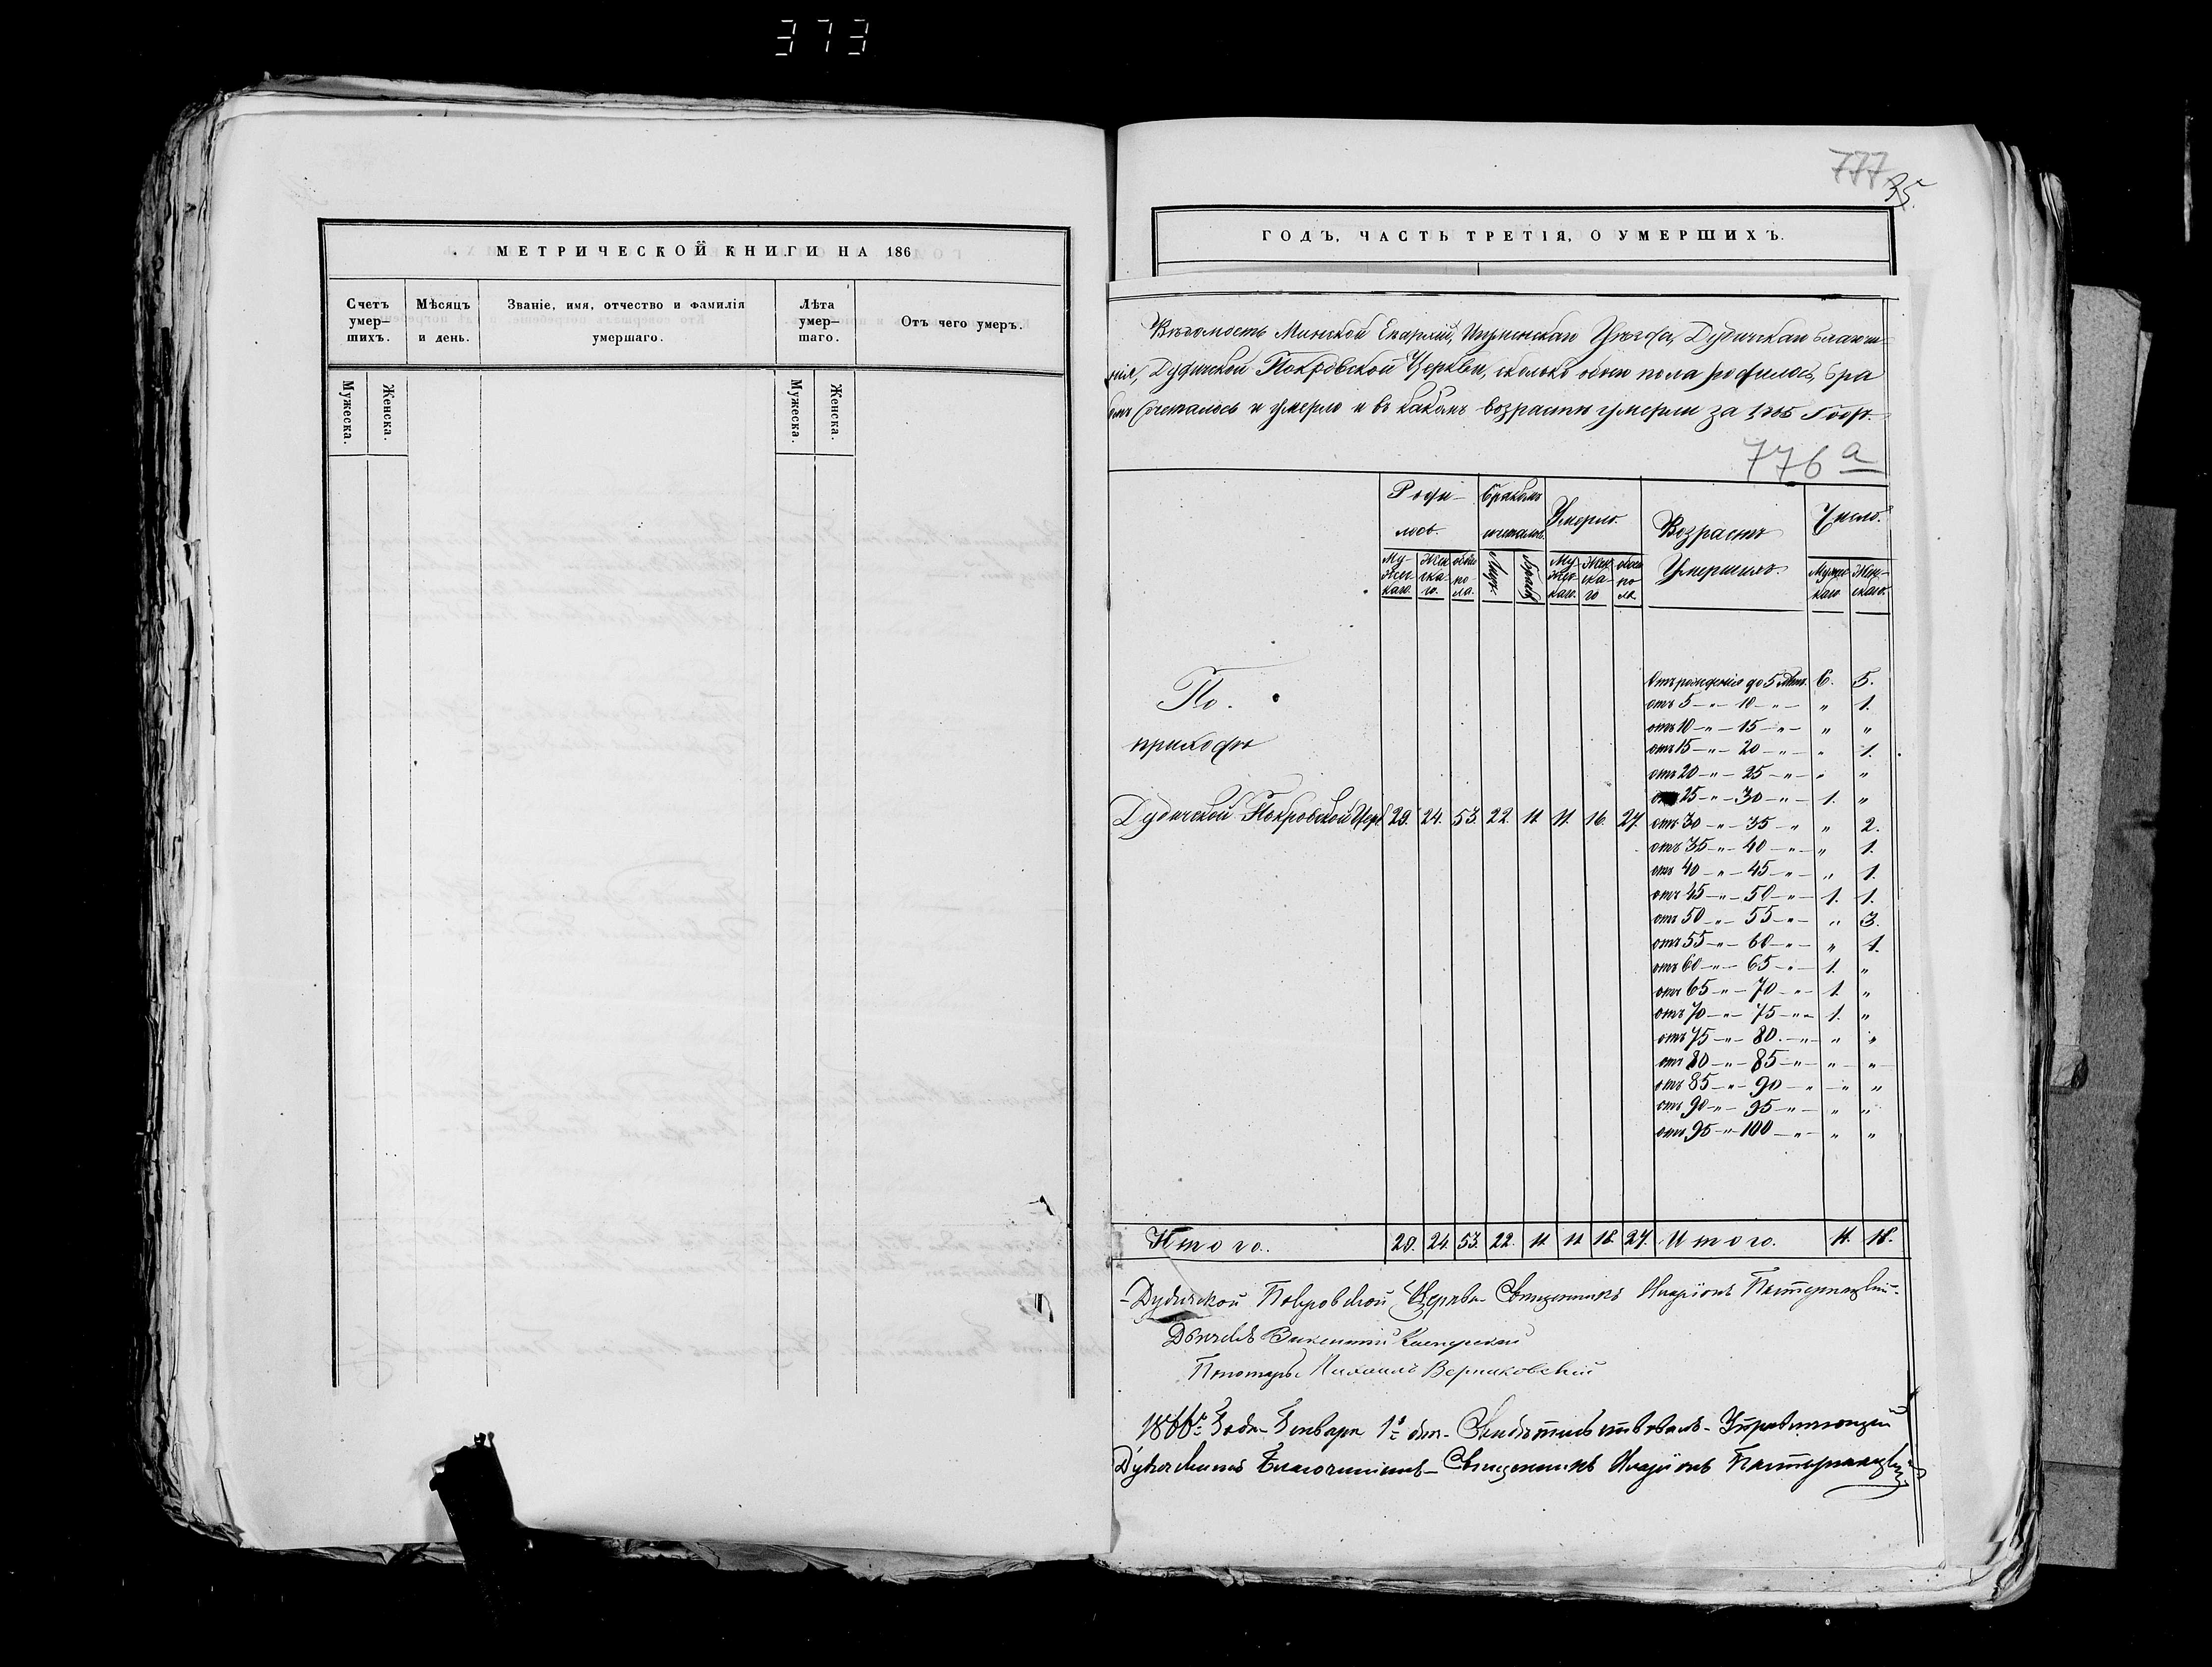 373
МЕТРИЧЕСКОЙ КНИГИ НА 186
Счетъ умер- шихъ.
Мѣсяцъ и день.
Званіе, имя, отчество и фамилія умершаго.
Лѣта умер- шаго.
Отъ чего умеръ.
Мужеска.
Женска.
Мужеска.
Женска.
777
35.
ГОДЪ, ЧАСТЬ ТРЕТІЯ, О УМЕРШИХЪ.
Вѣдомость Минской Епархіи, Игуменскаго Уѣзда, Дудичскаго благочи-
нія, Дудичской Покровской Церкви, сколько обоего пола родилось, бра
комъ сочеталось и умерло и въ какомъ возрастѣ умерли за 1865 Годъ.
776 а
Роди- лось.
Бракомъ сочеталось.
Умерло.
Возрастъ Умершихъ.
Число.
Му- жес- каго.
Жен- ска- го.
обоего по- ла.
Лицъ.
Браковъ
Му- жес- каго.
Жен- ска- го
обоего по- ла.
Мужес- каго
Жен- скаго.
По.
приходѣ
Дудичской Покровской Церк 29. 24. 53. 22. 11 11. 16. 27.
Отъ рожденія до 5 лѣтъ. 6. 5.
отъ 5 -"- 10 -"- " 1.
отъ 10 -"- 15 -"- " "
отъ 15 -"- 20 -"- " 1.
отъ 20 -"- 25 -"- " "
отъ 25 -"- 30 -"- 1. "
отъ 30 -"- 35 -"- " 2.
отъ 35 -"- 40 -"- " 1.
отъ 40 -"- 45 -"- " 1.
отъ 45 -"- 50 -"- 1. 1.
отъ 50 -"- 55 -"- " 3.
отъ 55 -"- 60 -"- " 1.
отъ 60 -"- 65 -"- 1. "
отъ 65 -"- 70 -"- 1. "
отъ 70 -"- 75 -"- 1. "
отъ 75 -"- 80. -"- " "
отъ 80 -"- 85 -"- " "
отъ 85 -"- 90 -"- " "
отъ 90 -"- 95 -"- " "
отъ 95 -"- 100 -"- " "
Итого. 29. 24 53. 22. 11 11 16. 27. Итого. 11. 16.
Дудичской Покровской Церкви Священникъ Иларіонъ Патернацкій
Дьячекъ Викентій
Пономарь Михаилъ Верниковскій
1866го Года Января 1го дня Свидѣтельствовалъ Управляющій
Дудичскимъ Благочиніемъ Священникъ Иларіонъ Патернацкій